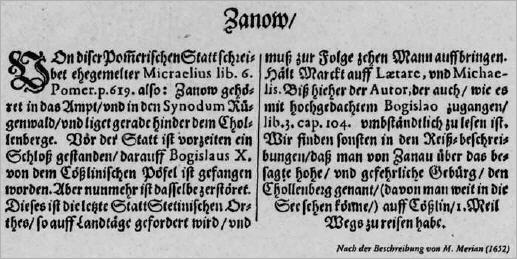 Zanow/
VOn diser Pom̃erischen Statt schrei-
bet ehegemelter Micraelius lib. 6.
Pomer. p. 619. also: Zanow gehö-
ret in das Ampt/ vnd in den Synodum Rü-
genwald/ vnd liget gerade hinder dem Chol-
lenberge. Vor der Statt ist vorzeiten ein
Schloß gestanden/ darauff Bogislaus X.
von dem Cößlinischen Pöfel ist gefangen
worden. Aber nunmehr ist dasselbe zerstöret.
Dieses ist die letzte Statt Stetinischen Or-
thes/ so auff Landtäge gefordert wird/ vnd
muß zur Folge zehen Mann auffbringen.
Hält Marckt auff Lætare, vnd Michae-
lis. Biß hieher der Autor, der auch/ wie es
mit hochgedachtem Bogislao zugangen/
lib. 3. cap. 104. vmbständtlich zu lesen ist.
Wir finden sonsten in den Reiß-beschrei-
bungen/ daß man von Zanau über das be-
sagte hohe/ vnd gefehrliche Gebürg/ den
Chollenberg genant/ (davon man weit in die
See sehen könne/) auff Cößlin/ 1. Meil
Wegs zu reisen habe.
Nach der Beschreibung von M. Merian (1652)